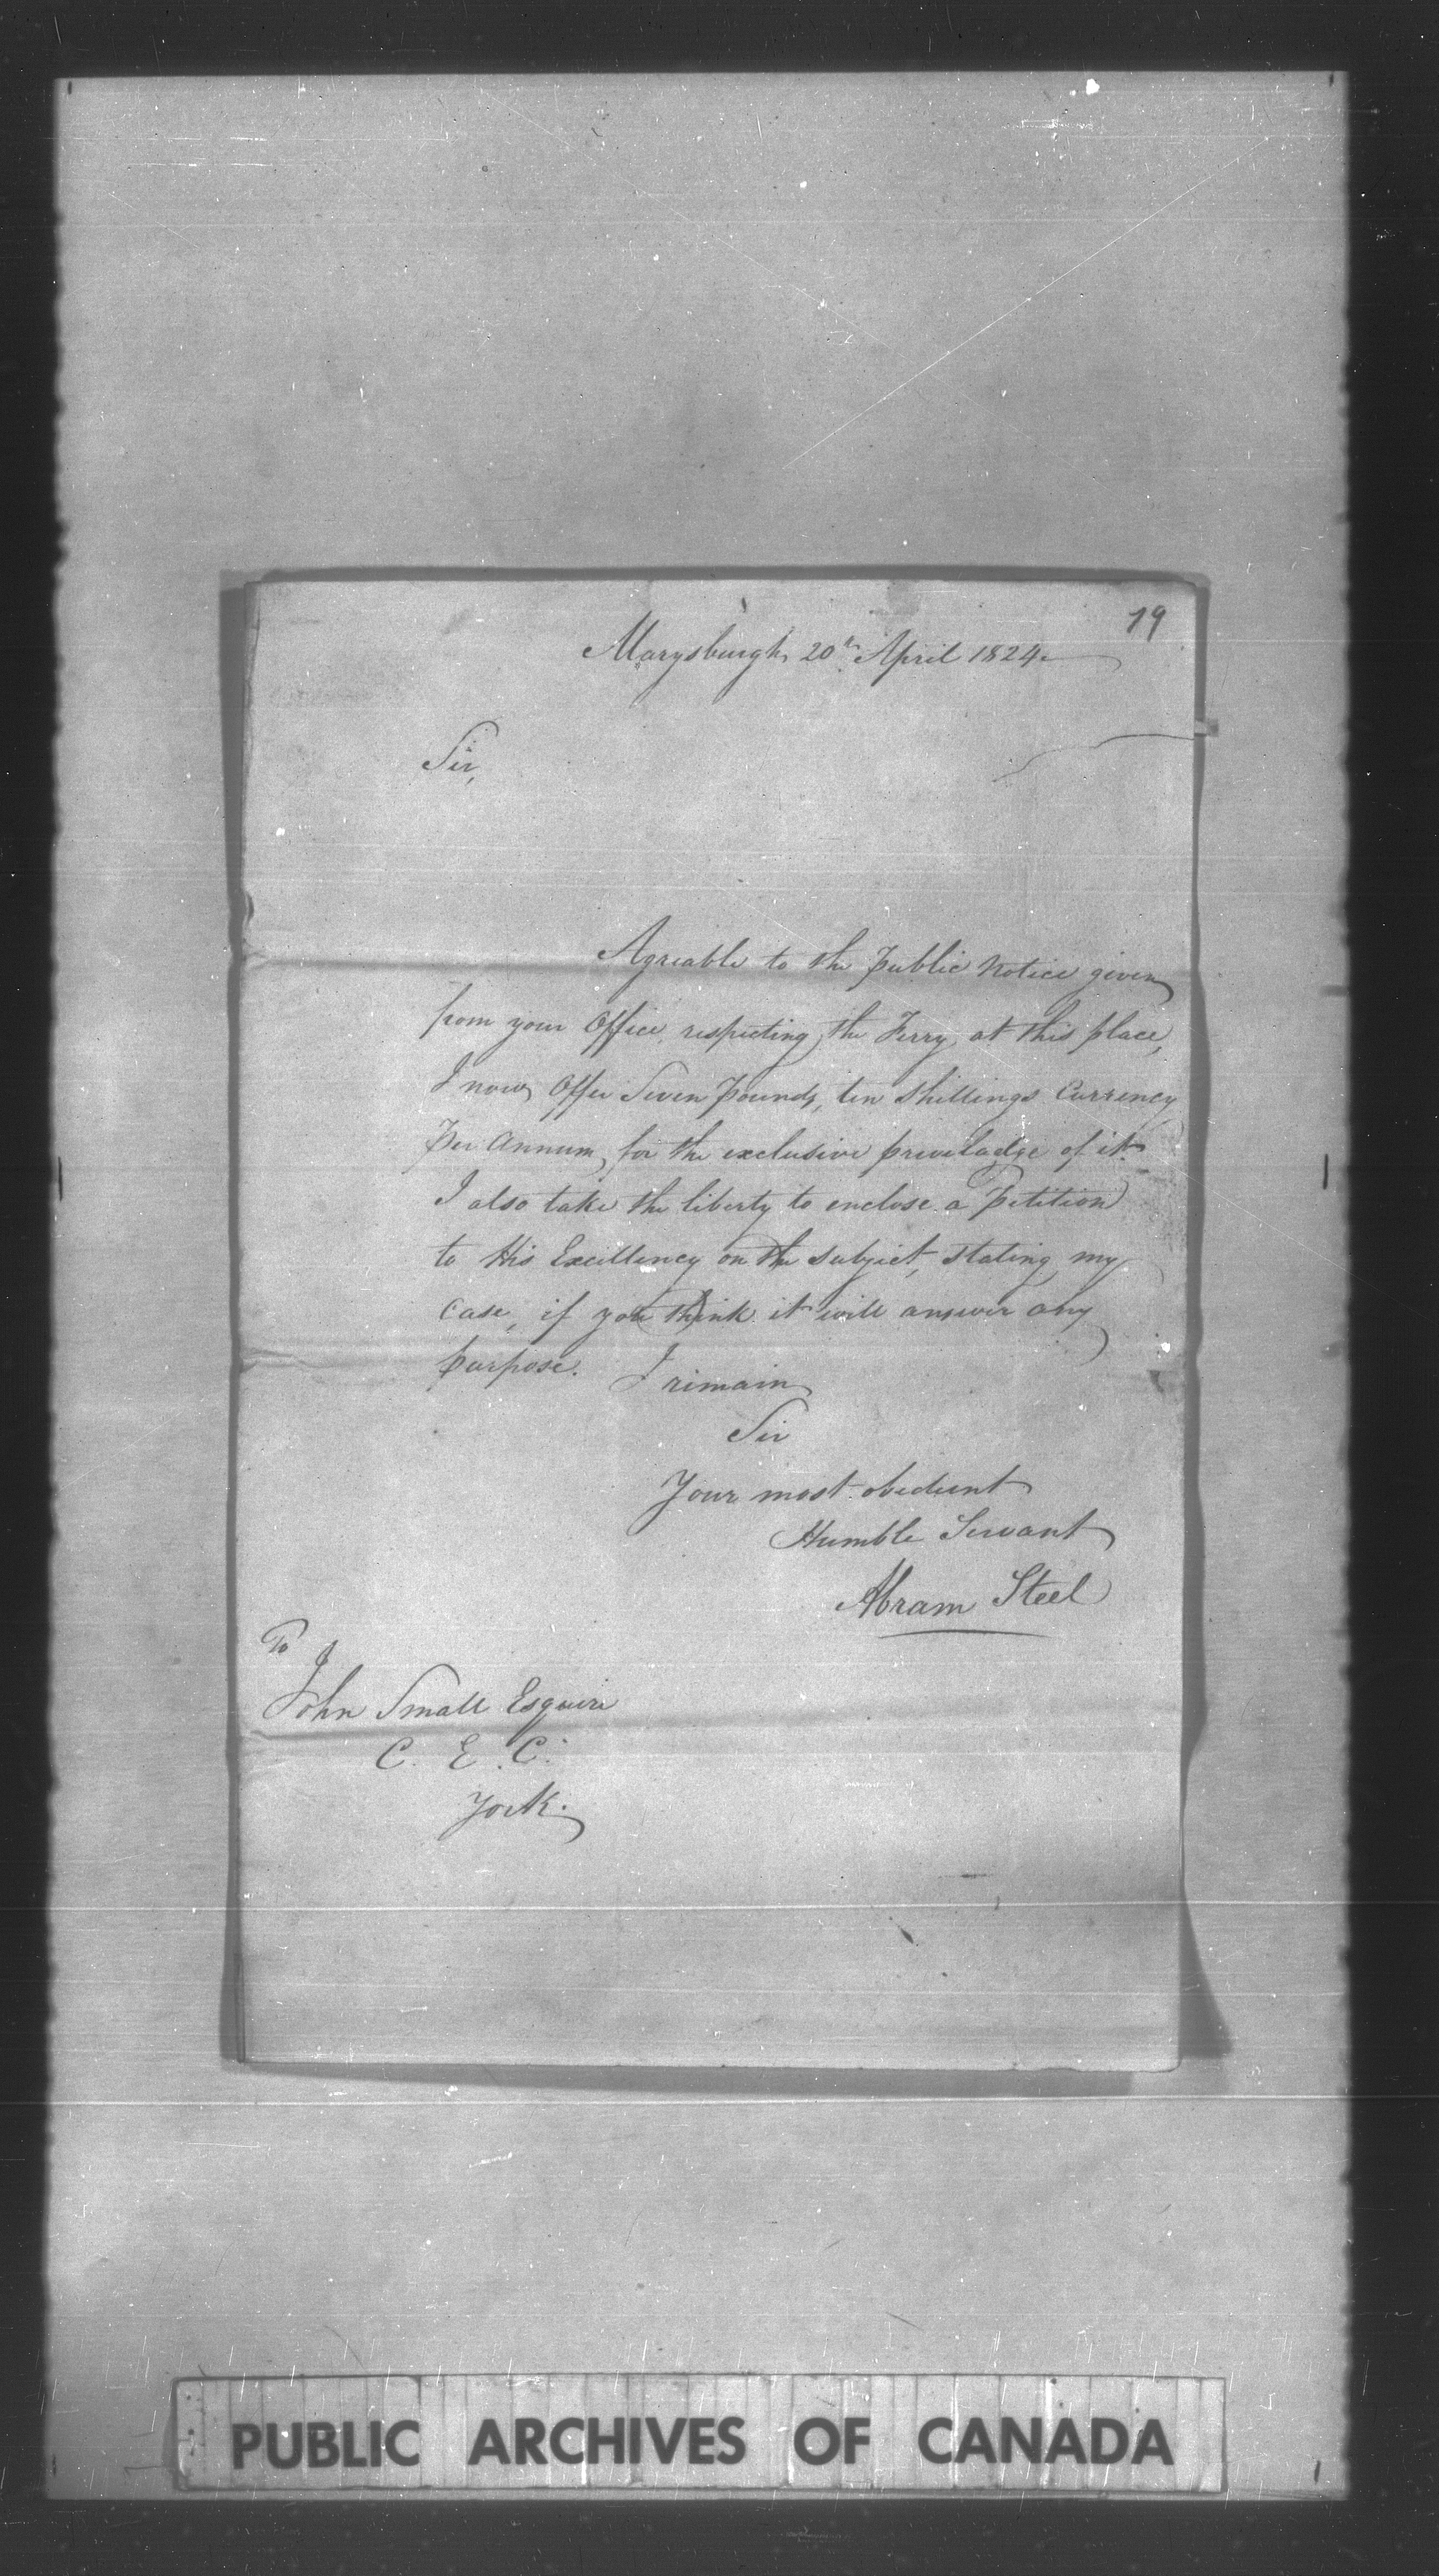 79
Marysburgh 20th April 1824
Sir,
Agreable to the public Notice given
from your Office, respecting the Ferry at this place,
I now Offer Seven Pounds, ten Shillings Currency
Per Annum, for the exclusive priveladge of it.
I also take the liberty to enclose a Petition
to His Excellency on the subject, stating my
case, if you think it will answer any
purpose. I remain
Sir
Your most obedient
Humble Servant
Abram Steel
To
John Small Esquire
C. E. C.
York.
PUBLIC ARCHIVES OF CANADA